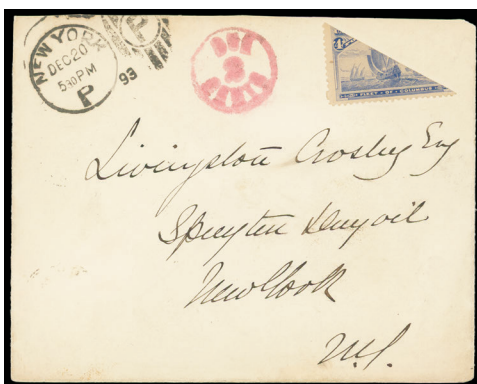 NEW YORK
DEC 20
530 PM
93
P
DUE
2
CENTS
4
FLEET OF COLUMBUS
Livingston Crosby Esq
Spuyten Duyvil
New York
N.Y.